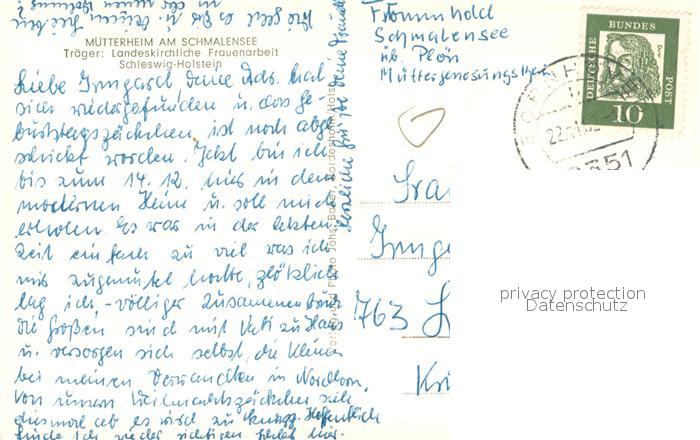 MÜTTERHEIM AM SCHMALENSEE
Träger: Landeskirchliche Frauenarbeit
Schleswig-Holstein
Liebe Irmgard, deine Adr. hat
sich wiedergefunden u. das Ge-
burtstagszeichen ist noch abge-
schickt worden. Jetzt bin ich
bis zum 14. 12. hier in dem
modernen Heim u. soll mich
erholen. Es war in der letzten
Zeit einfach zu viel was ich
mir zugemutet hatte, plötzlich
lag ich, - völliger Zusammenbruch
die Großen sind mit Vati zu Haus
u. versorgen sich selbst, die Kleinen
bei meinen Verwandten in
Von unserm Weihnachtszeichen
diesmal wird zu Hoffentlich
ich wieder
Wie geht es dir u. deinen lieben
in der neuen Wohnung?
Herzliche Grüße deine
Frommhold
Schmalensee
üb. Plön
Müttergenesungsheim
DEUTSCHE
BUNDES
POST
10
Frau
Irmg
763 L
Kri
privacy protection
Datenschutz